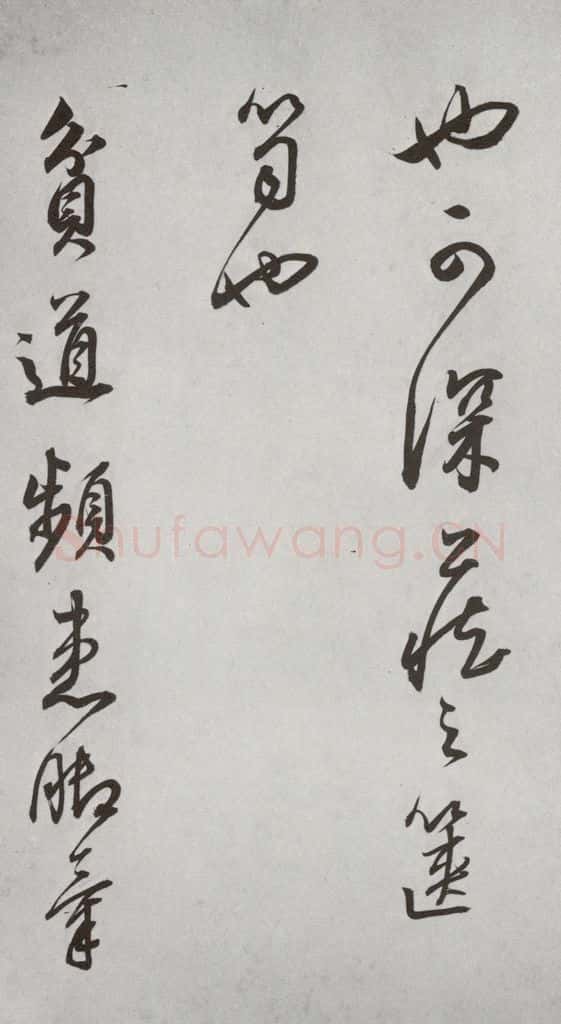 也可深藏之篋
笥也
貧道頻患脚氣
Shufawang.CN